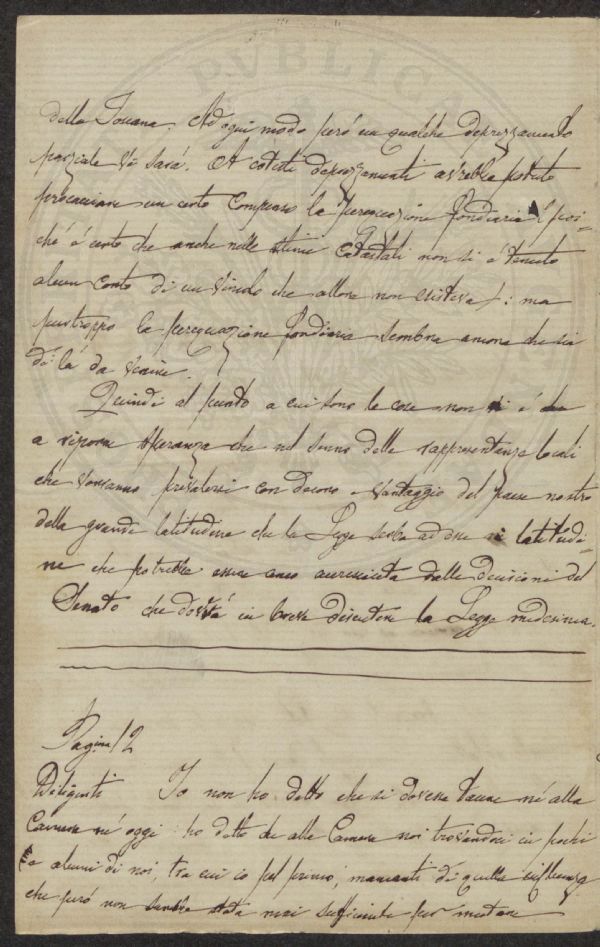 PVBLICA
della Toscana. Ad ogni modo però un qualche deprezzamento
parziale vi sarà. A cotesti deprezzamenti avrebbe potuto
procacciare un certo compenso la perequazione fondiaria poi=
ché è certo che anche nelle stime catastali non si è tenuto
alcun conto di un vincolo che allora non esisteva; ma
purtroppo la perequazione fondiaria sembra ancora che sia
di là da venire.
Quindi al punto a cui sono le cose non vi è che
a riporre speranza che nel senno delle rappresentanze locali
che vorranno prevalersi con decoro e vantaggio del paese nostro
della grande latitudine che la Legge serba ad esse latitudi=
ne che potrebbe essere anco accresciuta dalle decisioni del
Senato che dovrà in breve discutere la Legge medesima.
Pagina 12
Diligenti Io non ho detto che si dovesse tacere né alla
Camera né oggi: ho detto che alla Camera noi trovandoci in pochi
e alcuni di noi, tra cui io pel primo, mancanti di quella influenza
che però non sarebbe stata mai sufficiente per mutare